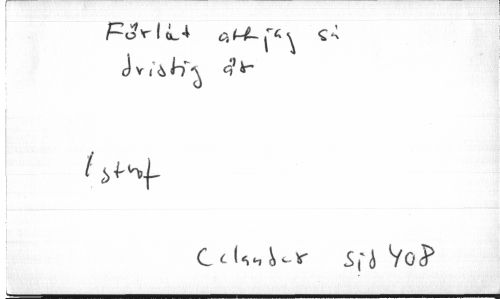 Förlåt att jag så
dristig är
1 strof
Celander sid 408